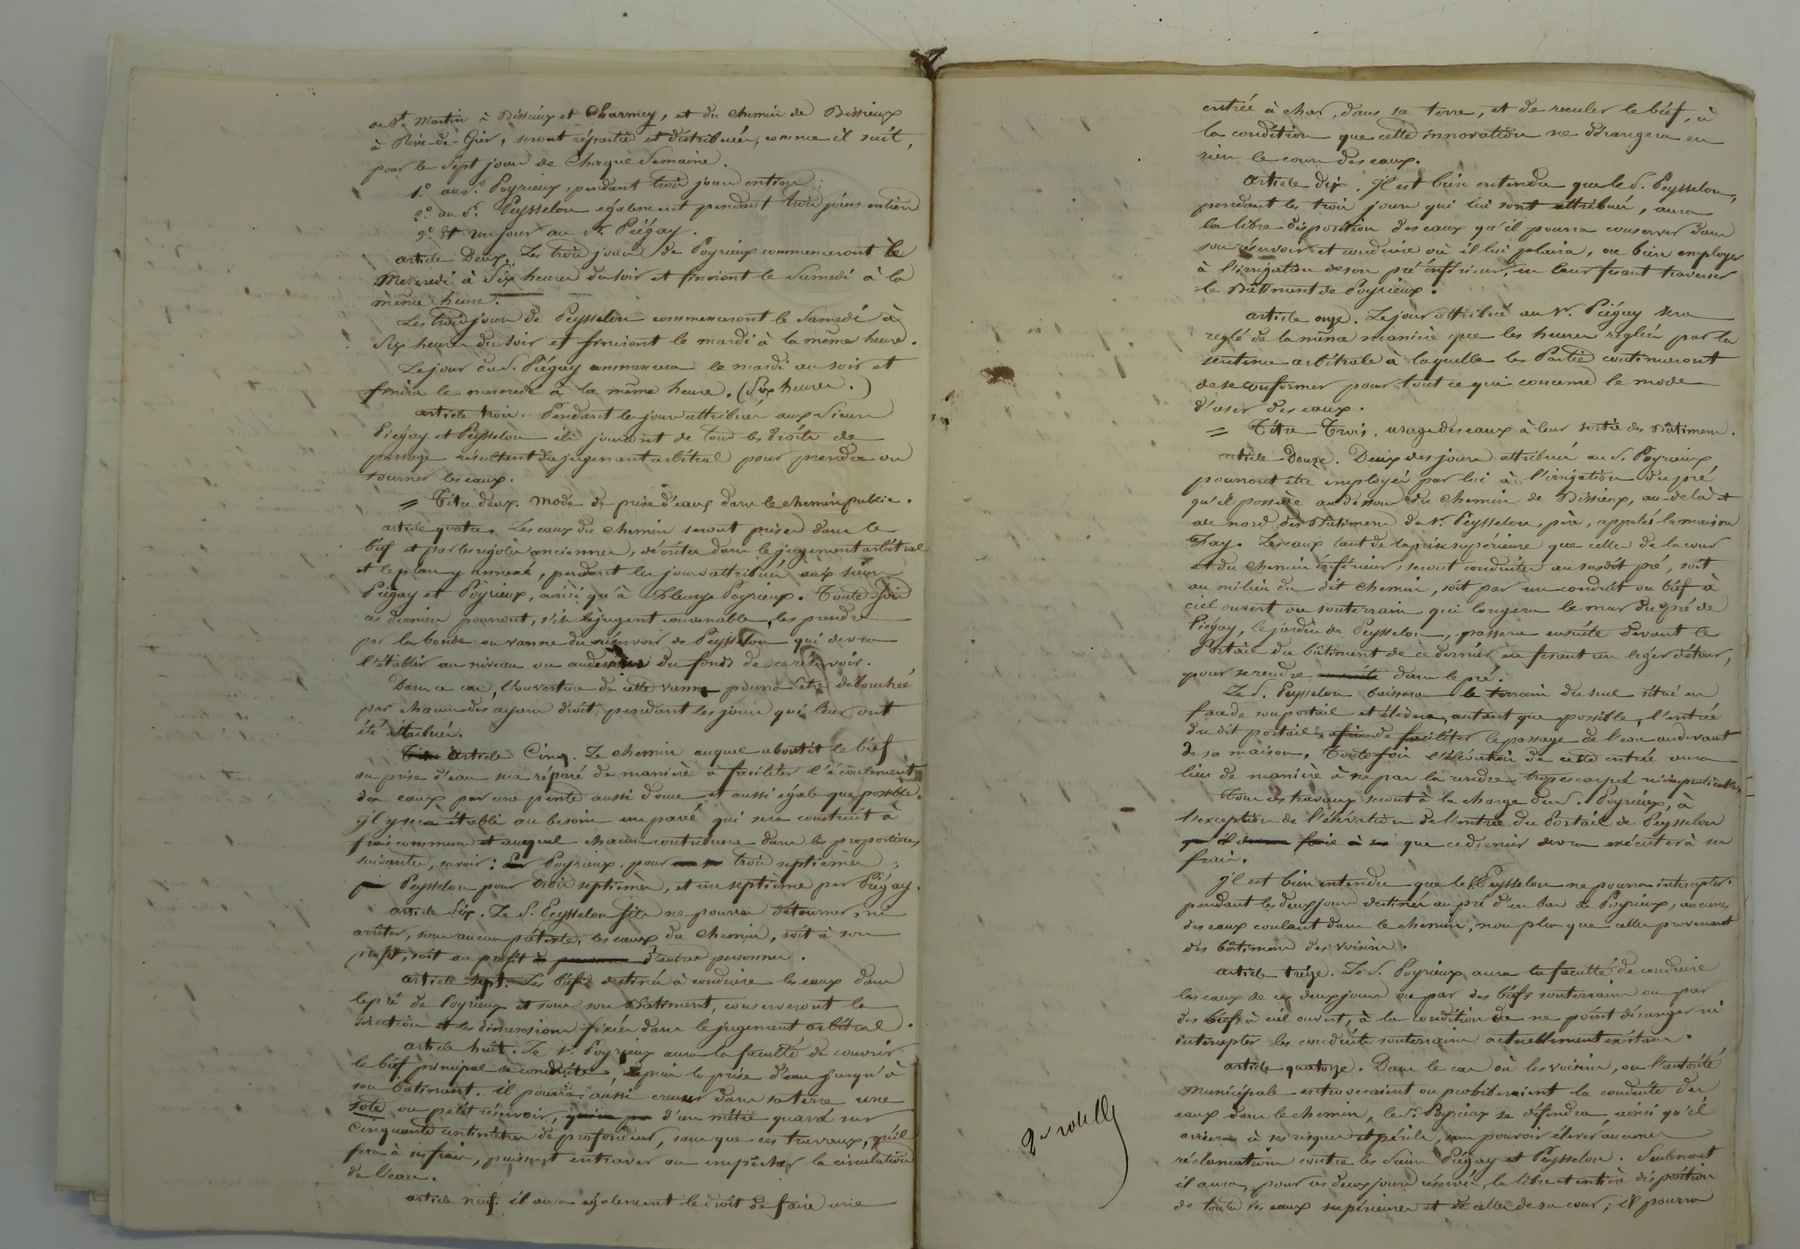 de St. Martin à Bissieux et Charmey, et du chemin de Bissieux
à Rive-de-Gier, seront répartis et distribués, comme il suit,
pour les sept jours de chaque semaine.
1.° au S. Poyrieux, pendant trois jours entiers;
2.° au S. Peysselon également pendant trois jours entiers
3.° Et un jour au S. Piégay.
article Deux. Les trois jours de Poyrieux commenceront le
Mercredi à Six heures du soir et finiront le Samedi à la
même heure.
Les trois jours de Peysselon commenceront le Samedi à
Six heures du soir et finiront le mardi à la même heure.
Le jour du S. Piégay commencera le mardi au soir et
finira le mercredi à la même heure. (Six heures.)
article trois. Pendant les jours attribués aux Sieurs
Piégay et Peysselon ils jouiront de tous les droits de
passage résultant du jugement arbitral pour prendre ou
tourner les eaux.
= Titre deux. Mode de prise d'eaux dans le chemin public.
article quatre. Les eaux du chemin seront prises dans le
bief et par les rigoles anciennes, décrites dans le jugement arbitral
et le plan y annexé, pendant les jours attribués aux sieurs
Piégay et Poyrieux, ainsi qu'à Poyrieux. Toute fois
ces derniers pourront, s'ils le jugent convenable, les prendre
par la bonde ou vanne du réservoir de Peysselon qui devra
l'établir au niveau ou au dessous du fonds de ce réservoir.
Dans ce cas, l'ouverture de cette vanne pourra être débouchée
par chacun des ayans droit, pendant les jours qui leur ont
été attribués.
article Cinq. Le chemin auquel aboutit le bief
ou prise d'eau sera réparé de manière à faciliter l'écoulement
des eaux par une pente aussi douce et aussi égale que possible.
Il y sera établi au besoin un pavé qui sera construit à
frais commun et auquel chacun contribuera dans les proportions
suivantes, savoir: Poyrieux pour trois septièmes;
Peysselon pour trois septièmes, et un septième par Piégay.
article Six. Le S. Peysselon fils ne pourra détourner, ni
arrêter, sous aucun prétexte, les eaux du chemin, soit à son
profit, soit au profit d'autres personnes.
article sept. Les biefs destinés à conduire les eaux dans
le pré de Poyrieux et sous son bâtiment, conserveront la
direction et les dimensions fixées dans le jugement arbitral.
article huit. Le S. Poyrieux aura la faculté de couvrir
le bief principal de conduite depuis la prise d'eau jusqu'à
son bâtiment. il pourra aussi creuser dans sa terre une
ou petit réservoir, d'un mètre quarré sur
Cinquante centimètres de profondeur, sans que ces travaux, qu'il
fera à ses frais, puissent entraver ou empêcher la circulation
de l'eau.
article neuf. il aura également le droit de faire une
entrée à char, dans sa terre, et de reculer le bief, à
la condition que cette innovation ne dérangera en
rien le cours des eaux.
article dix. Il est bien entendu que le S. Peysselon,
pendant les trois jours qui lui sont attribués, aura
la libre disposition des eaux qu'il pourra conserver dans
son réservoir et conduire où il lui plaira, ou bien employer
à l'irrigation de son pré inférieur, en leur fesant traverser
le Bâtiment de Poyrieux.
article onze. Le jour attribué au S. Piégay sera
reglé de la même manière que les heures reglées par la
sentence arbitrale à laquelle les Parties continueront
de se conformer pour tout ce qui concerne le mode
d'user des eaux.
= Titre Trois. usage des eaux à leur sortie des Bâtimens.
article Douze. Deux des jours attribués au S. Poyrieux
pourront être employés par lui à l'irrigation du pré
qu'il possède au dessous du chemin de Bissieux, au-delà et
au nord des Bâtimens du S. Peysselon, père, appelés la maison
Fay. Les eaux tant de la prise supérieure que celles de la cour
et du chemin inférieur, seront conduites au susdit pré, soit
au milieu du dit chemin, soit par un conduit ou bief à
ciel ouvert ou souterrain qui longera le mur du pré de
Piégay, le jardin de Peysselon, passera ensuite devant le
Portail du bâtiment de ce dernier en fesant un leger détour,
pour se rendre dans le pré.
Le S. Peysselon baissera le terrain du seuil situé en
face de son portail et élevera, autant que possible, l'entrée
du dit portail afin de faciliter le passage de l'eau au devant
de sa maison. Toute fois l'élévation de cette entrée aura
lieu de manière à ne pas la rendre trop escarpée ni impraticable.
Tous ces travaux seront à la charge du S. Poyrieux, à
l'exception de l'élévation de l'entrée du Portail de Peysselon
que ce dernier devra exécuter à ses
frais.
Il est bien entendu que le S. Peysselon ne pourra intercepter
pendant les deux jours destinés au pré d'en bas de Poyrieux, aucunes
des eaux coulant dans le chemin, non plus que celles provenant
des bâtimens des voisins.
article treize. Le S. Poyrieux aura la faculté de conduire
les eaux de ces deux jours ou par des biefs souterrains ou par
des biefs à ciel ouvert, à la condition de ne point déranger ni
intercepter les conduits souterrains actuellement existans.
article quatorze. Dans le cas où les voisins, ou l'autorité
Municipale entraveraient ou prohiberaient la conduite des
eaux dans le chemin, le S. Poyrieux se défendra ainsi qu'il
avisera à ses risques et périls, sans pouvoir élever aucunes
réclamations contre les Sieurs Piégay et Peysselon. Seulement
il aura, pour ces deux jours réservés, la libre et entière disposition
de toutes les eaux supérieures et de celles de sa cour; il pourra